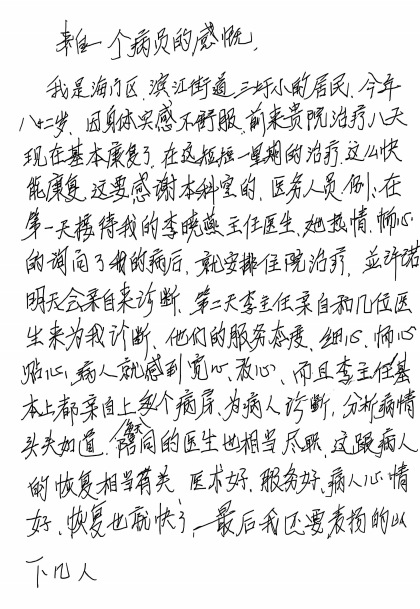 来自一个病员的感慨,
我是海门区,滨江街道,三圩小的居民,今年
八十二岁,因身体实感不舒服,前来贵院治疗八天
现在基本康复了,在这短短一星期的治疗,这么快
能康复,这要感谢本科室的,医务人员,例:在
第一天接待我的李晓燕主任医生,她热情,师心
的询问了我的病后,就安排住院治疗,并许诺
明天会亲自来诊断,第二天李主任亲自和几位医
生来为我诊断,他们的服务态度,细心,师心
贴心,病人就感到宽心、放心、而且李主任基
本上都亲自上各个病房,为病人诊断,分析病情
头头知道,陪同的医生也相当尽职,这跟病人
的恢复相当有关,医术好,服务好,病人心情
好,恢复也就快了,最后我还要表扬的以
下几人